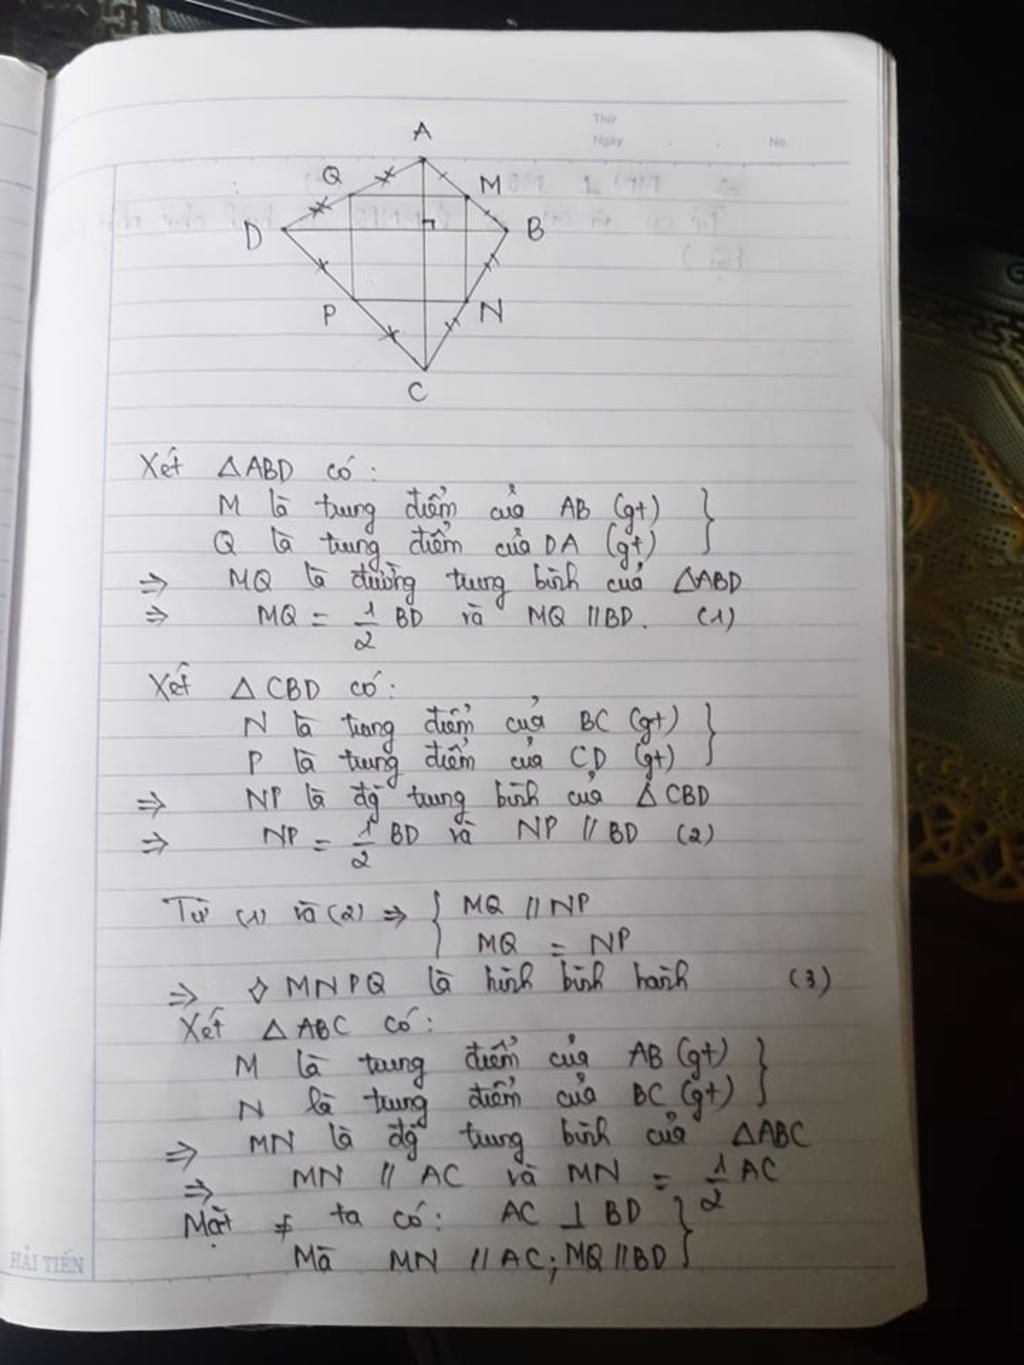 Thứ
Ngày
No.
A
Q
M
D
B
P
N
C
Xét △ABD có:
M là trung điểm của AB (gt) }
Q là trung điểm của DA (gt)
⇒ MQ là đường trung bình của △ABD
⇒ MQ = 1/2 BD và MQ // BD. (1)
Xét △CBD có:
N là trung điểm của BC (gt) }
P là trung điểm của CD (gt)
⇒ NP là đg̀ trung bình của △CBD
⇒ NP = 1/2 BD và NP // BD (2)
Từ (1) và (2) ⇒ { MQ // NP
MQ = NP
⇒ ◊ MNPQ là hình bình hành (3)
Xét △ABC có:
M là trung điểm của AB (gt) }
N là trung điểm của BC (gt)
⇒ MN là đg̀ trung bình của △ABC
⇒ MN // AC và MN = 1/2 AC
Mặt ≠ ta có: AC ⊥ BD }
Mà MN // AC; MQ // BD
HẢI TIẾN